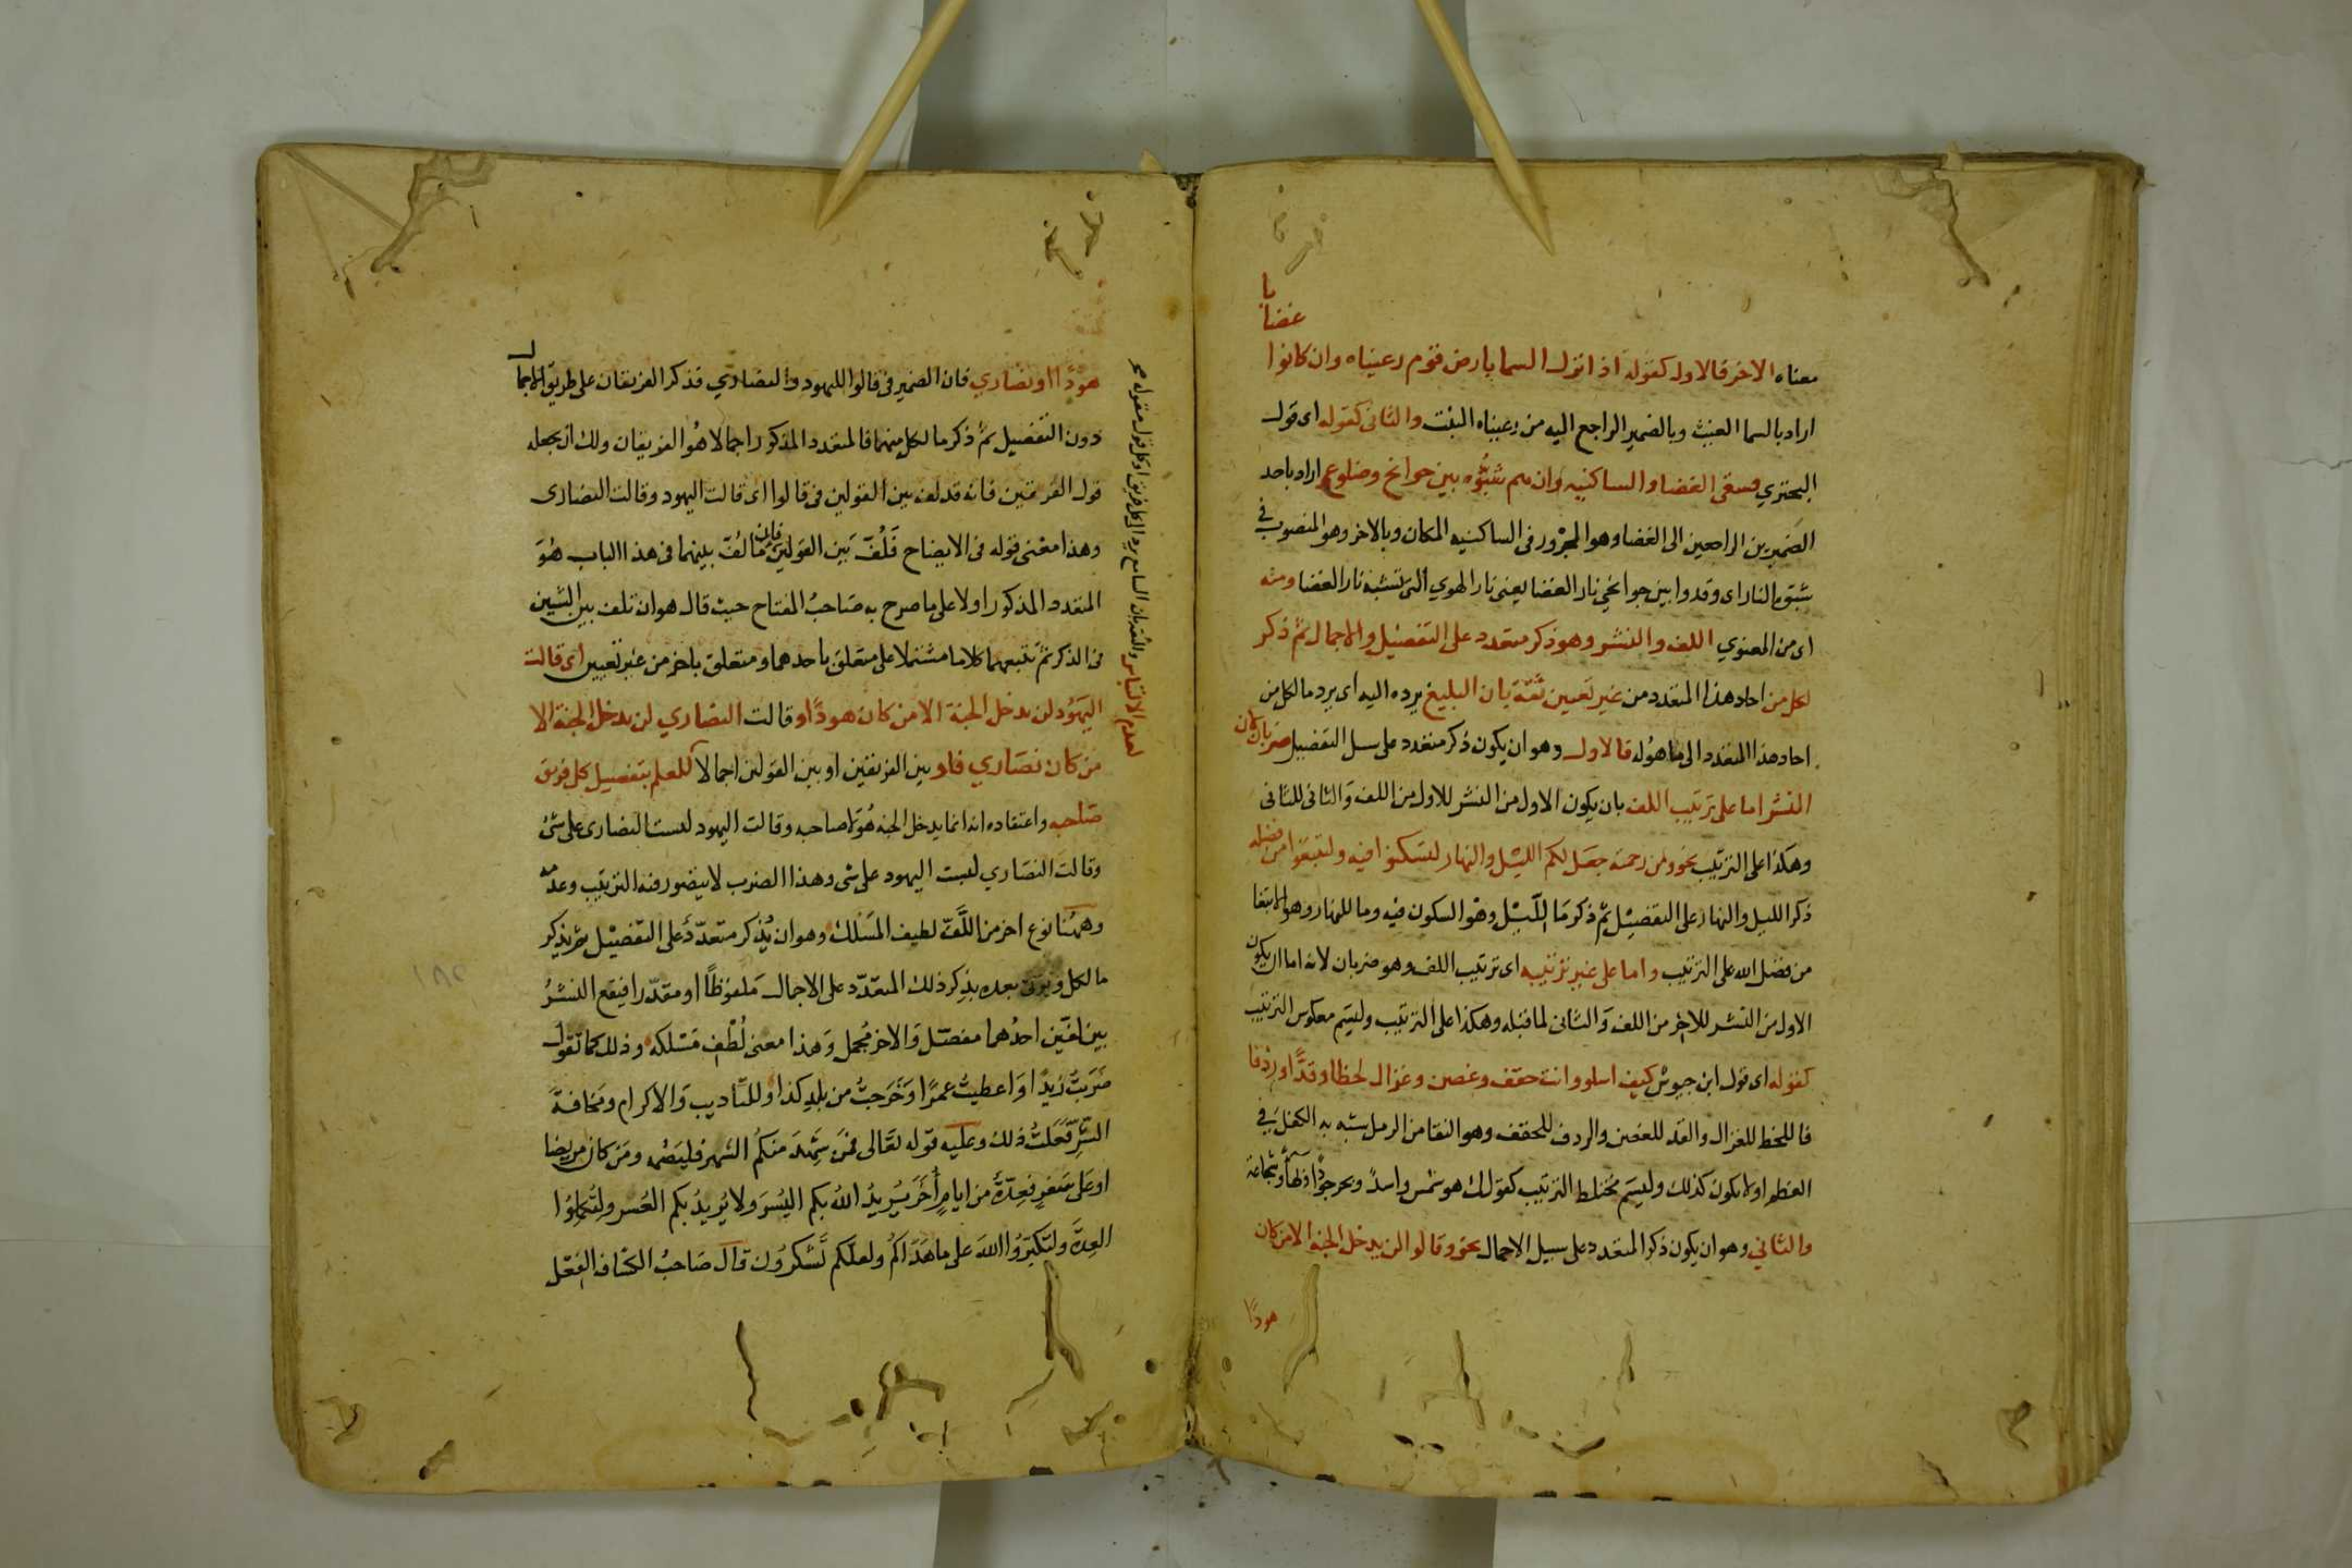 معناه الاخر فالاول كقوله اذا نزل السما بارض قوم رعيناه وان كانوا
غضابا
اراد بالسما الغيث وبالضمير الراجع اليه من رعيناه النبت والثانى كقوله اى قول
البحتري فسقى الغضا والساكنيه وان هم شبّوه بين جوانح وضلوع اراد باحد
الضميرين الراجعين الى الغضا وهو المجرور فى الساكنيه المكان وبالاخر وهو المنصوب فى
شبّوه النار اى وقدوا بين جوانحي نار الغضا يعنى نار الهوي التى تشبه نار الغضا ومنه
اى من المعنوي اللف والنشر وهو ذكر متعدد على التفصيل والاجمال ثم ذكر
لكل من احاد هذا المتعدد من غير تعيين ثقة بان البليغ يرده اليه اى يرد ما لكل من
احاد هذا المتعدد الى ما هو له فالاول وهو ان يكون ذكر متعدد على سبيل التفصيل ضربان لان
النشر اما على ترتيب اللف بان يكون الاول من النشر للاول من اللف والثانى للثانى
وهكذا على الترتيب نحو ومن رحمته جعل لكم الليل والنهار لتسكنوا فيه ولتبتغوا من فضله
ذكر الليل والنهار على التفصيل ثم ذكر ما الليل وهو السكون فيه وما للنهار وهو الابتغا
من فضل الله على الترتيب واما على غير ترتيبه اى ترتيب اللف وهو ضربان لانه اما ان يكون
الاول من النشر للاخر من اللف والثانى لما قبله وهكذا على الترتيب وليسم معكوس الترتيب
كقوله اى قول ابن حيوش كيف اسلو وانت حقف وغصن وغزال لحظا وقدًّا وردفا
فاللحظ للغزال والقد للغصن والردف للحقف وهو النقا من الرمل شبه به الكفل فى
العظم او لا يكون كذلك وليسم مختلط الترتيب كقولك هو شمس واسدٌ وبحر جودًا وبهاءً وشجاعة
والثاني وهو ان يكون ذكر المتعدد على سبيل الاجمال نحو وقالوا لن يدخل الجنة الا من كان
هودًا
هودًا او نصاري فان الضمير فى قالوا لليهود والنصاري فذكر الفريقان على طريق الاجمال
دون التفصيل ثم ذكر ما لكل منهما فالمتعدد المذكور اجمالا هو الفريقان ولك ان يجعله
قول الفريقين فانه قد لف بين القولين فى قالوا اى قالت اليهود وقالت النصارى
وهذا معنى قوله فى الايضاح فلُفّ بين القولين فان ما لُفّ بينهما فى هذا الباب هو
المتعدد المذكور اولا على ما صرح به صاحب المفتاح حيث قال هو ان تلف بين الشيين
فى الذكر ثم تتبعهما كلاما مشتملا على متعلق باحدهما ومتعلق باخر من غير تعيين اى قالت
اليهود لن يدخل الجنة الا من كان هودًا وقالت النصاري لن يدخل الجنة الا
من كان نصاري فلف بين الفريقين او بين القولين اجمالا للعلم بتضليل كل فريق
صاحبه واعتقاده انه انما يدخل الجنة هو لا صاحبه وقالت اليهود ليست النصارى على شئ
وقالت النصاري ليست اليهود على شى وهذا الضرب لا يتصور فيه الترتيب وعدمه
وههُنا نوع اخر من اللَّفّ لطيف المَسْلك وهو ان يُذكر متعدّد على التفصيل ثم يذكر
ما لكل ويؤتى بعده بذكر ذلك المتعدّد على الاجمال ملفوظًا او مقدّرا فيقع النشرُ
بين لفّين احدُهما مفصّل والاخر مُجمل وهذا معنى لُطْف مَسْلكه وذلك كما تقول
ضربتُ زيدًا واعطيتُ عمرًا وخرجتُ من بلدِ كذا وللتّاديب والاكرام ومخافة
الشّرِّ فعلتُ ذلك وعليه قوله تعالى فمن شهد منكم الشهر فليصمه ومن كان مريضا
او على سَفرٍ فعدّةٌ من ايامٍ اُخَرَ يُريدُ اللهُ بكم اليُسرَ ولا يُريدُ بكم العُسر ولِتُكملُوا
العِدّةَ ولتكبّرُوا اللهَ على ما هَدَاكُم ولعلّكم تَشكُرُون قال صَاحبُ الكشاف الفعل
او كل قول مقوله صح
رد الى كل فريق
والثقة بان السامع
لعدم الالتباس
١٨٢